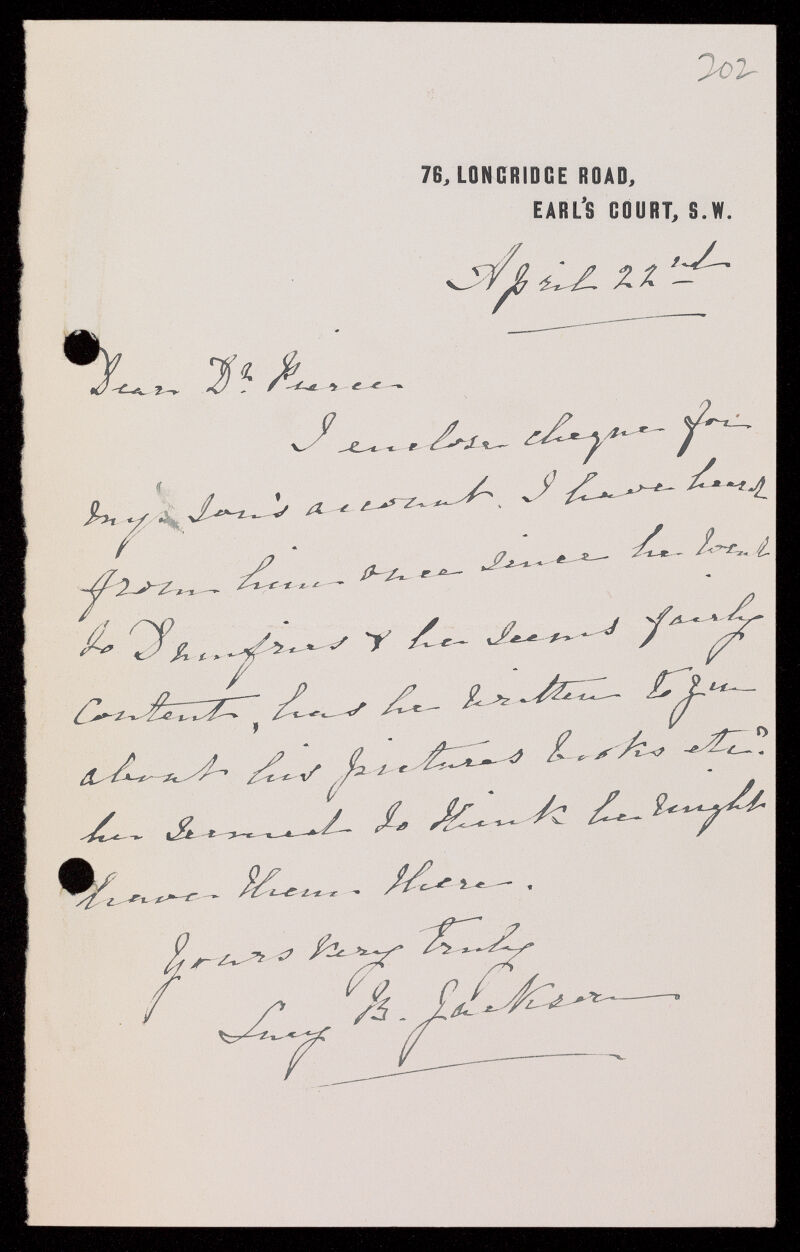 202
76, LONGRIDGE ROAD,
EARL'S COURT, S.W.
April 22nd
Dear Dr. Pierce
I enclose cheque for
my son's account. I have heard
from him once since he went
to Dumfries & he seems fairly
content, has he written to you
about his pictures books etc?
he seemed to think he might
have them there.
Yours very truly
Lucy B. Jackson